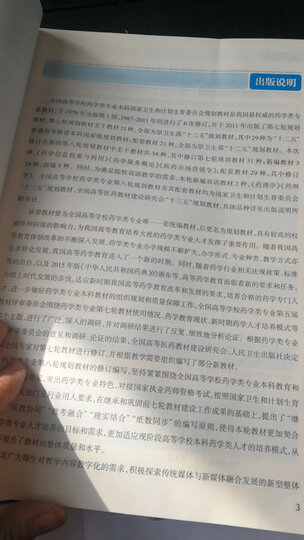 出版说明
全国高等学校药学类专业本科国家卫生和计划生育委员会规划教材是我国最权威的药学类专
业教材,于1979年出版第1版,1987-2011年间进行了6次修订,并于2011年出版了第七轮规划
教材。第七轮规划教材主干教材31种,全部为原卫生部"十二五"规划教材,其中29种为"十二五"
普通高等教育本科国家级规划教材;配套教材21种,全部为原卫生部"十二五"规划教材。本次
修订出版的第八轮规划教材中主干教材共34种,其中修订第七轮规划教材31种;新编教材3
种,《药学信息检索与利用》《药学服务概论》《医药市场营销学》;配套教材29种,其中修订
24种,新编5种。同时,为满足院校双语教学的需求,本轮新编双语教材2种,《药理学》《药剂
学》。全国高等学校药学类专业第八轮规划教材及其配套教材均为国家卫生和计划生育委员会
"十三五"规划教材、全国高等医药教材建设研究会"十三五"规划教材,具体品种详见出版说明所
附书目。
该套教材曾为全国高等学校药学类专业唯一一套统编教材,后更名为规划教材,具有较高的权
威性和较强的影响力,为我国高等教育培养大批的药学类专业人才发挥了重要作用。随着我国高
等教育体制改革的不断深入发展,药学类专业办学规模不断扩大,办学形式、专业种类、教学方式亦
呈多样化发展,我国高等药学教育进入了一个新的时期。同时,随着药学行业相关法规政策、标准
等的出台,以及2015年版《中华人民共和国药典》的颁布等,高等药学教育面临着新的要求和任务。
为跟上时代发展的步伐,适应新时期我国高等药学教育改革和发展的要求,培养合格的药学专门人
才,进一步做好药学类专业本科教材的组织规划和质量保障工作,全国高等学校药学类专业第五届
教材评审委员会围绕药学类专业第七轮教材使用情况、药学教育现状、新时期药学人才培养模式等
多个主题,进行了广泛、深入的调研,并对调研结果进行了反复、细致地分析论证。根据药学类专业
教材评审委员会的意见和调研、论证的结果,全国高等医药教材建设研究会、人民卫生出版社决定
全国专家对第七轮教材进行修订,并根据教学需要组织编写了部分新教材。
药学类专业第八轮规划教材的修订编写,坚持紧紧围绕全国高等学校药学类专业本科教育和
要求,突出药学类专业特色,对接国家执业药师资格考试,按照国家卫生和计划生育
关部门及行业用人要求,在继承和巩固前七轮教材建设工作成果的基础上,提出了"继
"医教协同""教考融合""理实结合""纸数同步"的编写原则,使得本轮教材更加契合
学类专业人才培养的目标和需求,更加适应现阶段高等学校本科药学类人才的培养模式,从
升了教材的整体质量和水平。
足广大师生对教学内容数字化的需求,积极探索传统媒体与新媒体融合发展的新型整体
3